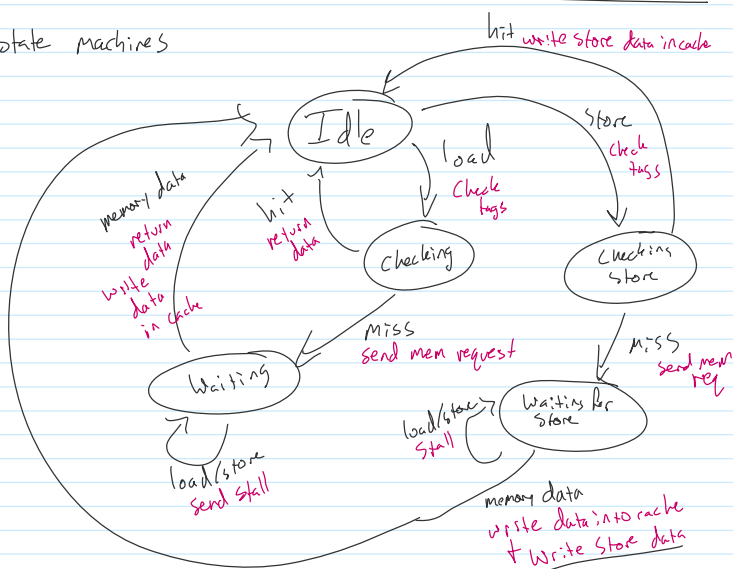 state machines
hit write store data in cache
Idle
store
check
tags
load
Check
tags
memory data
return
data
write
data
in cache
hit
return
data
checking
Checking
store
miss
send mem request
miss
send mem
req
Waiting
Waiting for
store
load/store
stall
load/store
send stall
memory data
write data into cache
+ write store data